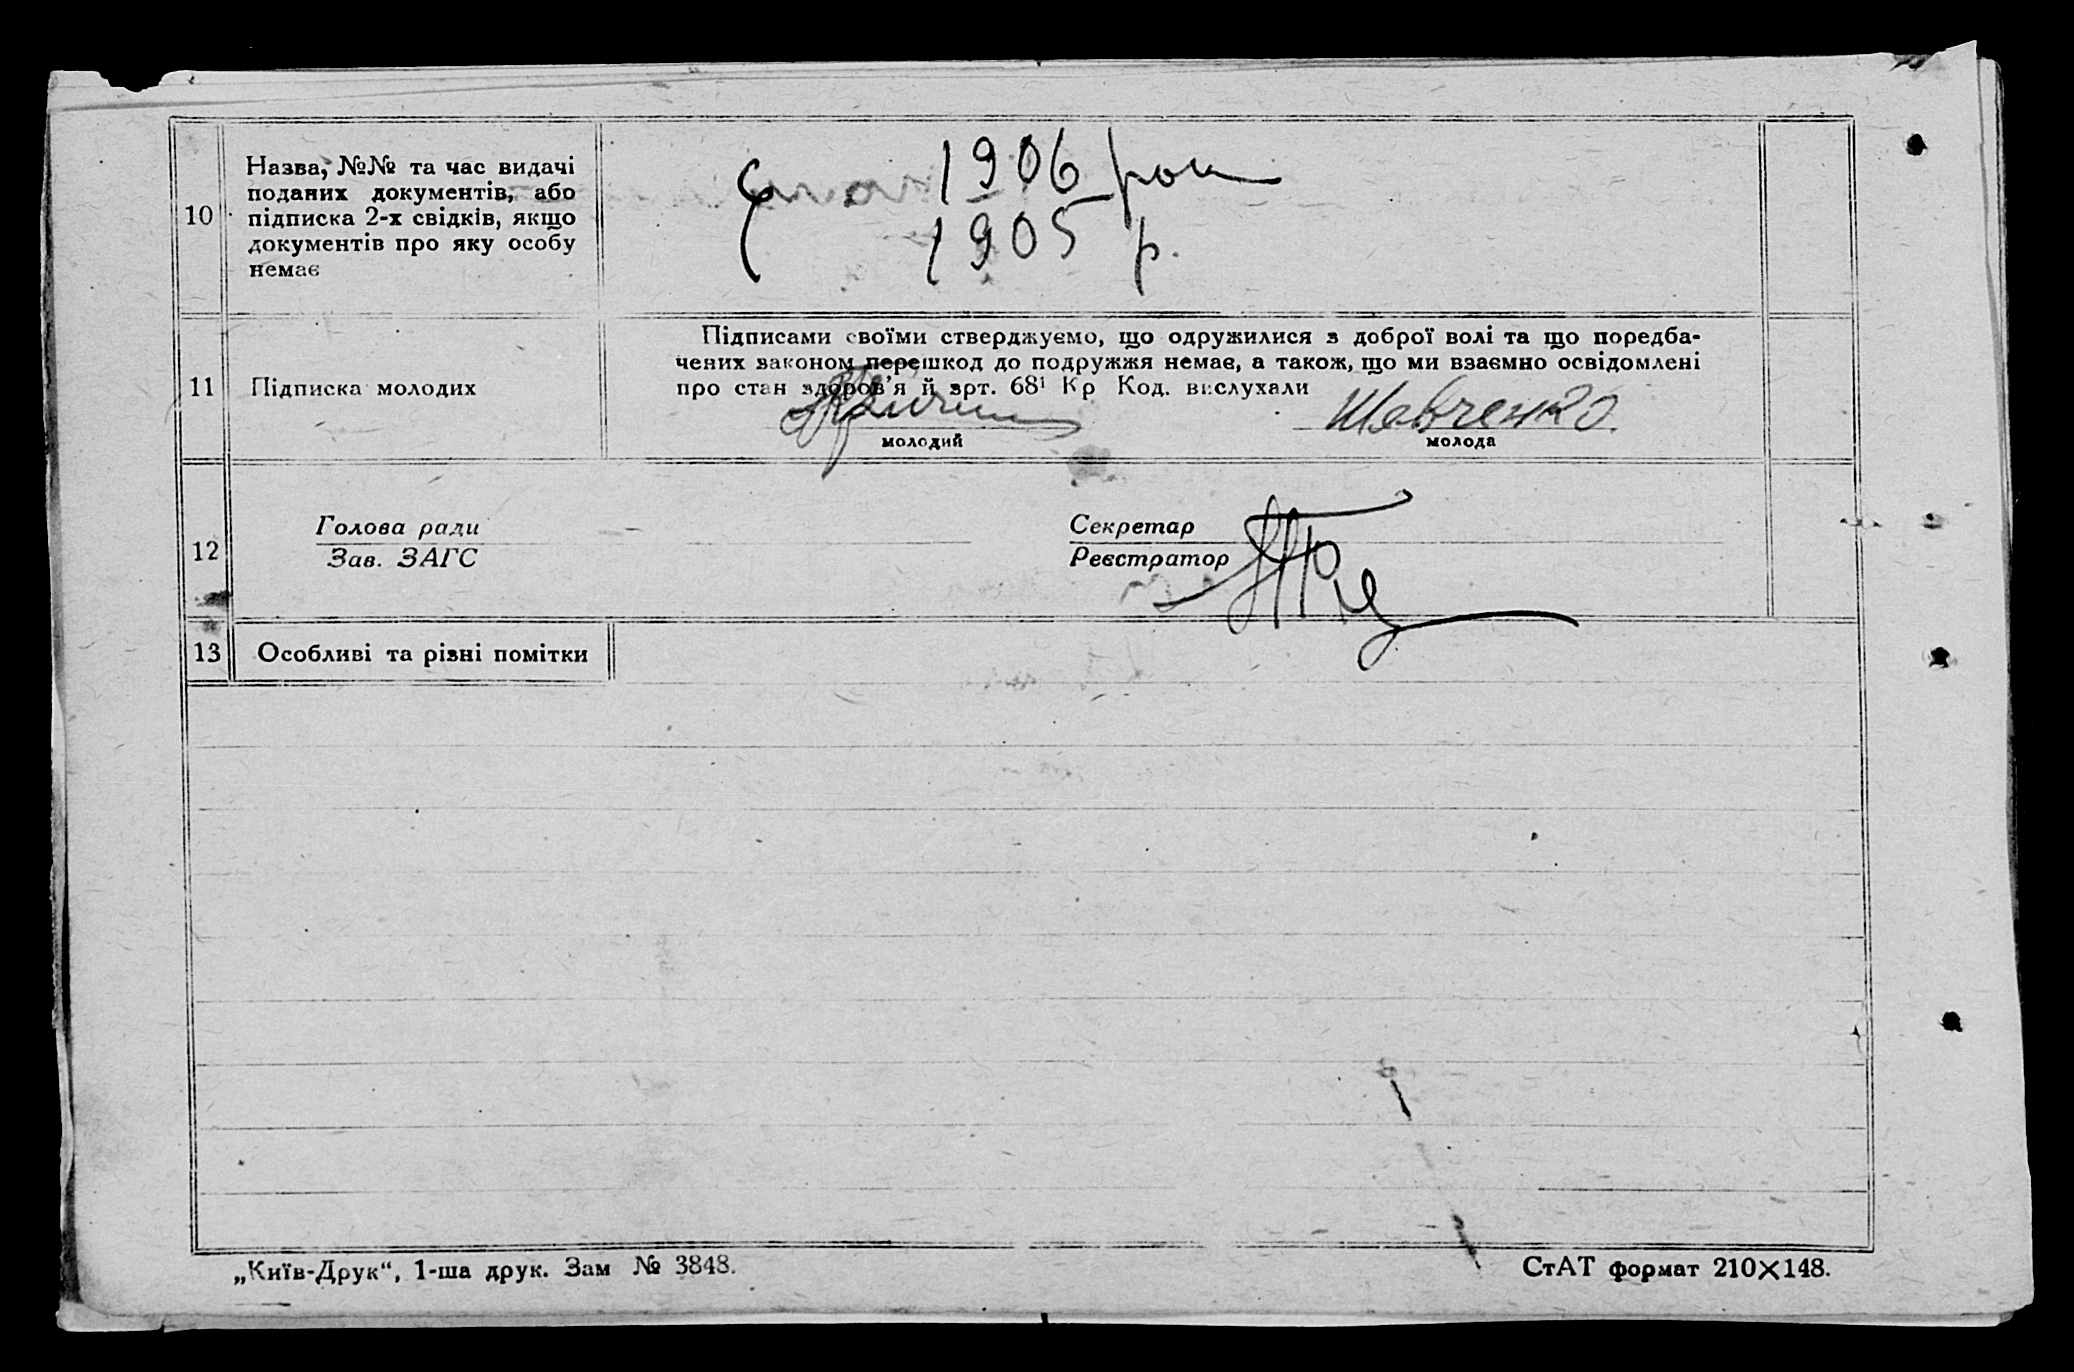 10
Назва, №№ та час видачі
поданих документів, або
підписка 2-х свідків, якщо
документів про яку особу
немає
1906 рок
1905 р.
11
Підписка молодих
Підписами своїми стверджуємо, що одружилися з доброї волі та що передба-
чених законом перешкод до подружжя немає, а також, що ми взаємно освідомлені
про стан здоров'я й арт. 68¹ Кр Код. вислухали
Шевченко.
молодий
молода
12
Голова ради
Зав. ЗАГС
Секретар
Реєстратор
13
Особливі та різні помітки
„Київ-Друк“, 1-ша друк. Зам № 3848.
СтАТ формат 210×148.